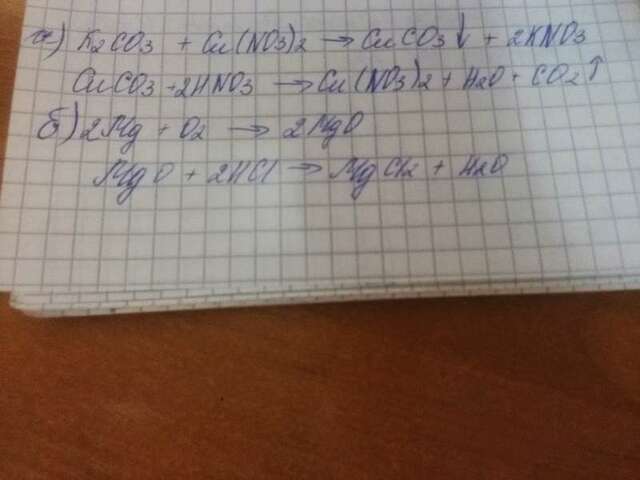 а) K2CO3 + Cu(NO3)2 → CuCO3↓ + 2KNO3
CuCO3 + 2HNO3 → Cu(NO3)2 + H2O + CO2↑
б) 2Mg + O2 → 2MgO
MgO + 2HCl → MgCl2 + H2O